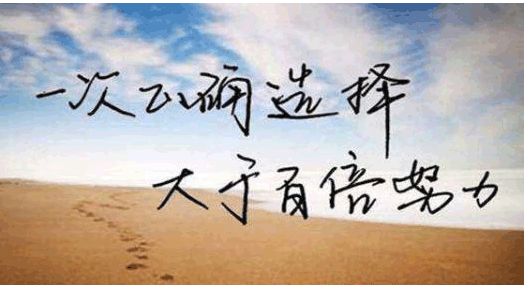 一次正确选择
大于百倍努力